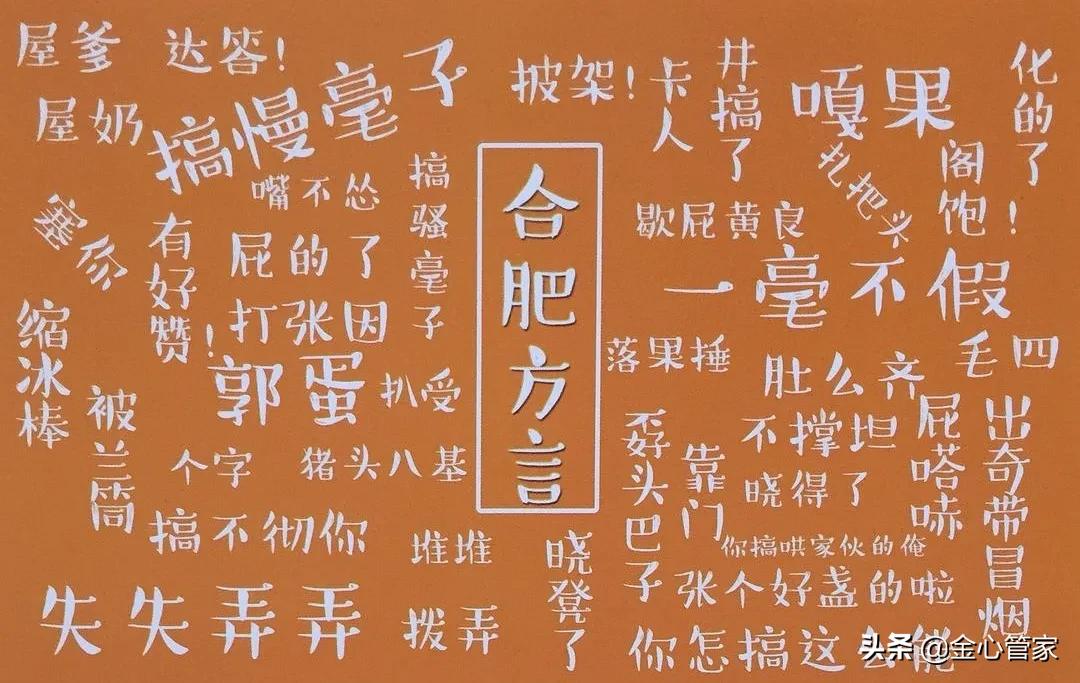 屋爹
达答！
屋奶
搞慢毫子
嘴不怂
搞骚毫子
塞你
有好赞！
屁的了
打张因
缩冰棒
郭蛋
扒受
被兰筒
个字
猪头八基
搞不彻你
堆堆
失失弄弄
拨弄
合肥方言
披架！
卡人
井搞了
嘎果
化的了
扎把头
阁饱！
歇屁黄良
一毫不假
落果捶
毛四
肚么齐
孬头巴子
靠门
不撑坦
晓得了
屁嗒哧
出奇带冒烟
你搞哄家伙的俺
晓登了
张个好盏的啦
你怎搞这么能
头条@金心管家